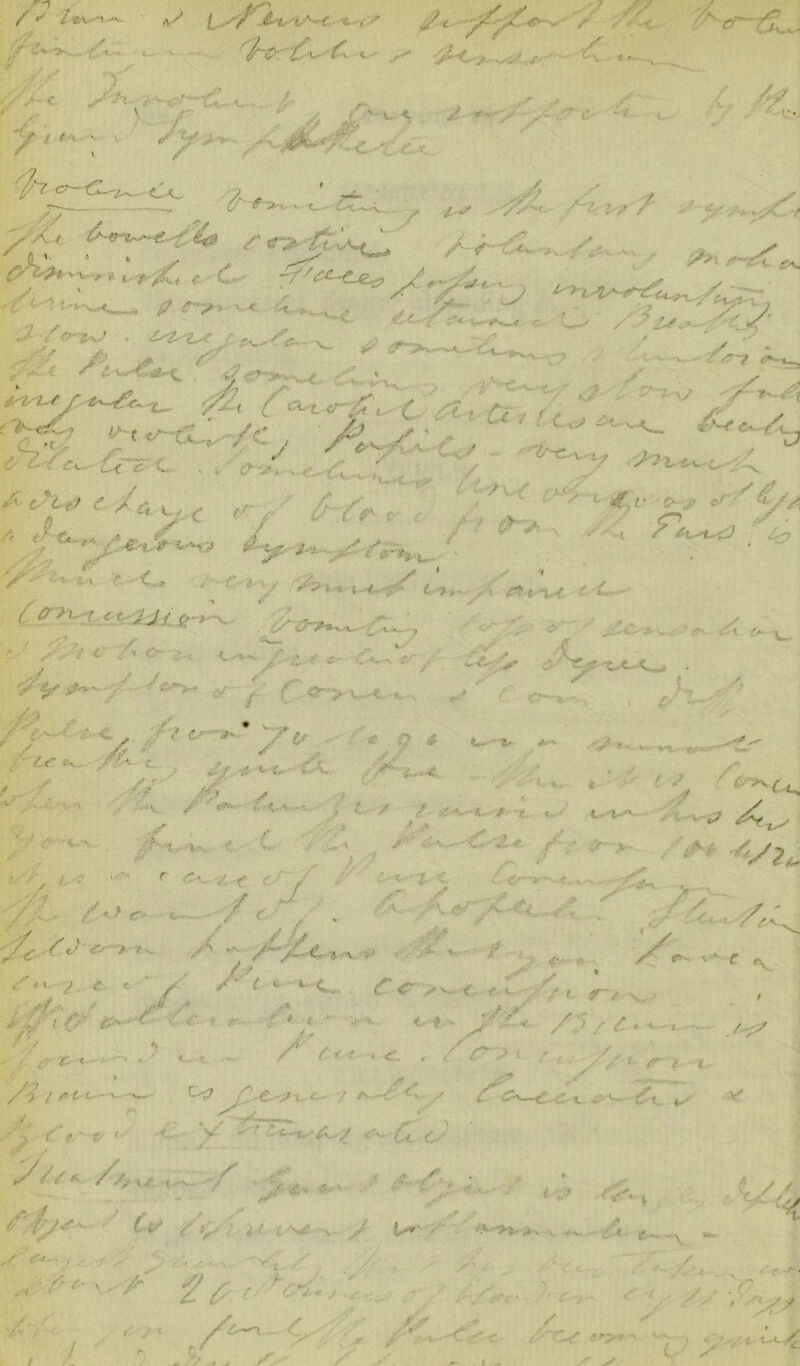 Brain & Nerves support the
functions volition & sensorium
The Involunt are supported by the
Grand Sympathetic
Violence vomiting is the first sympt
The bowells costive voluntary motion
diminished Faeces passing involuntary
Urine sometime retained Breathg
slow. irregular sometimes stertorious
The Pulse sometimes very slow full
irregular The Carotid Arteries are beating
very violently Pupils - very much
dilated. Sometimes
a discharge of blood from the Ears is
a dangerous symptom
very much impaired
Concussion Vomiting loss of sensation
& Motion in greater or less degree.
Symptom of Concu & Com. diff
Pulse from 70 to 90 in a minute
breathing quick the it is Concu
When the Patient is raised in his bed
You find the Pulse from 100 to 120
it is a case of Pure Concussion
The want of Apoplectic Stertor
Seldom happens that you have a
case of Pure concussion
No alteration in the Brain is
found in Pure. Concussion
Brain is generally lacerated &
Blood extravasated
Treatment Great object is
object is to prevent inflammation -
largest quantity that has been taken
about 200 ounces of blood in eight days
you find the Pulse becoming quick